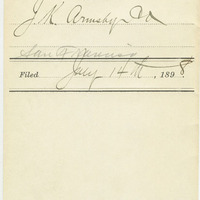 J. K. Armsby Co
San Francisco
Filed July 14th, 1898.